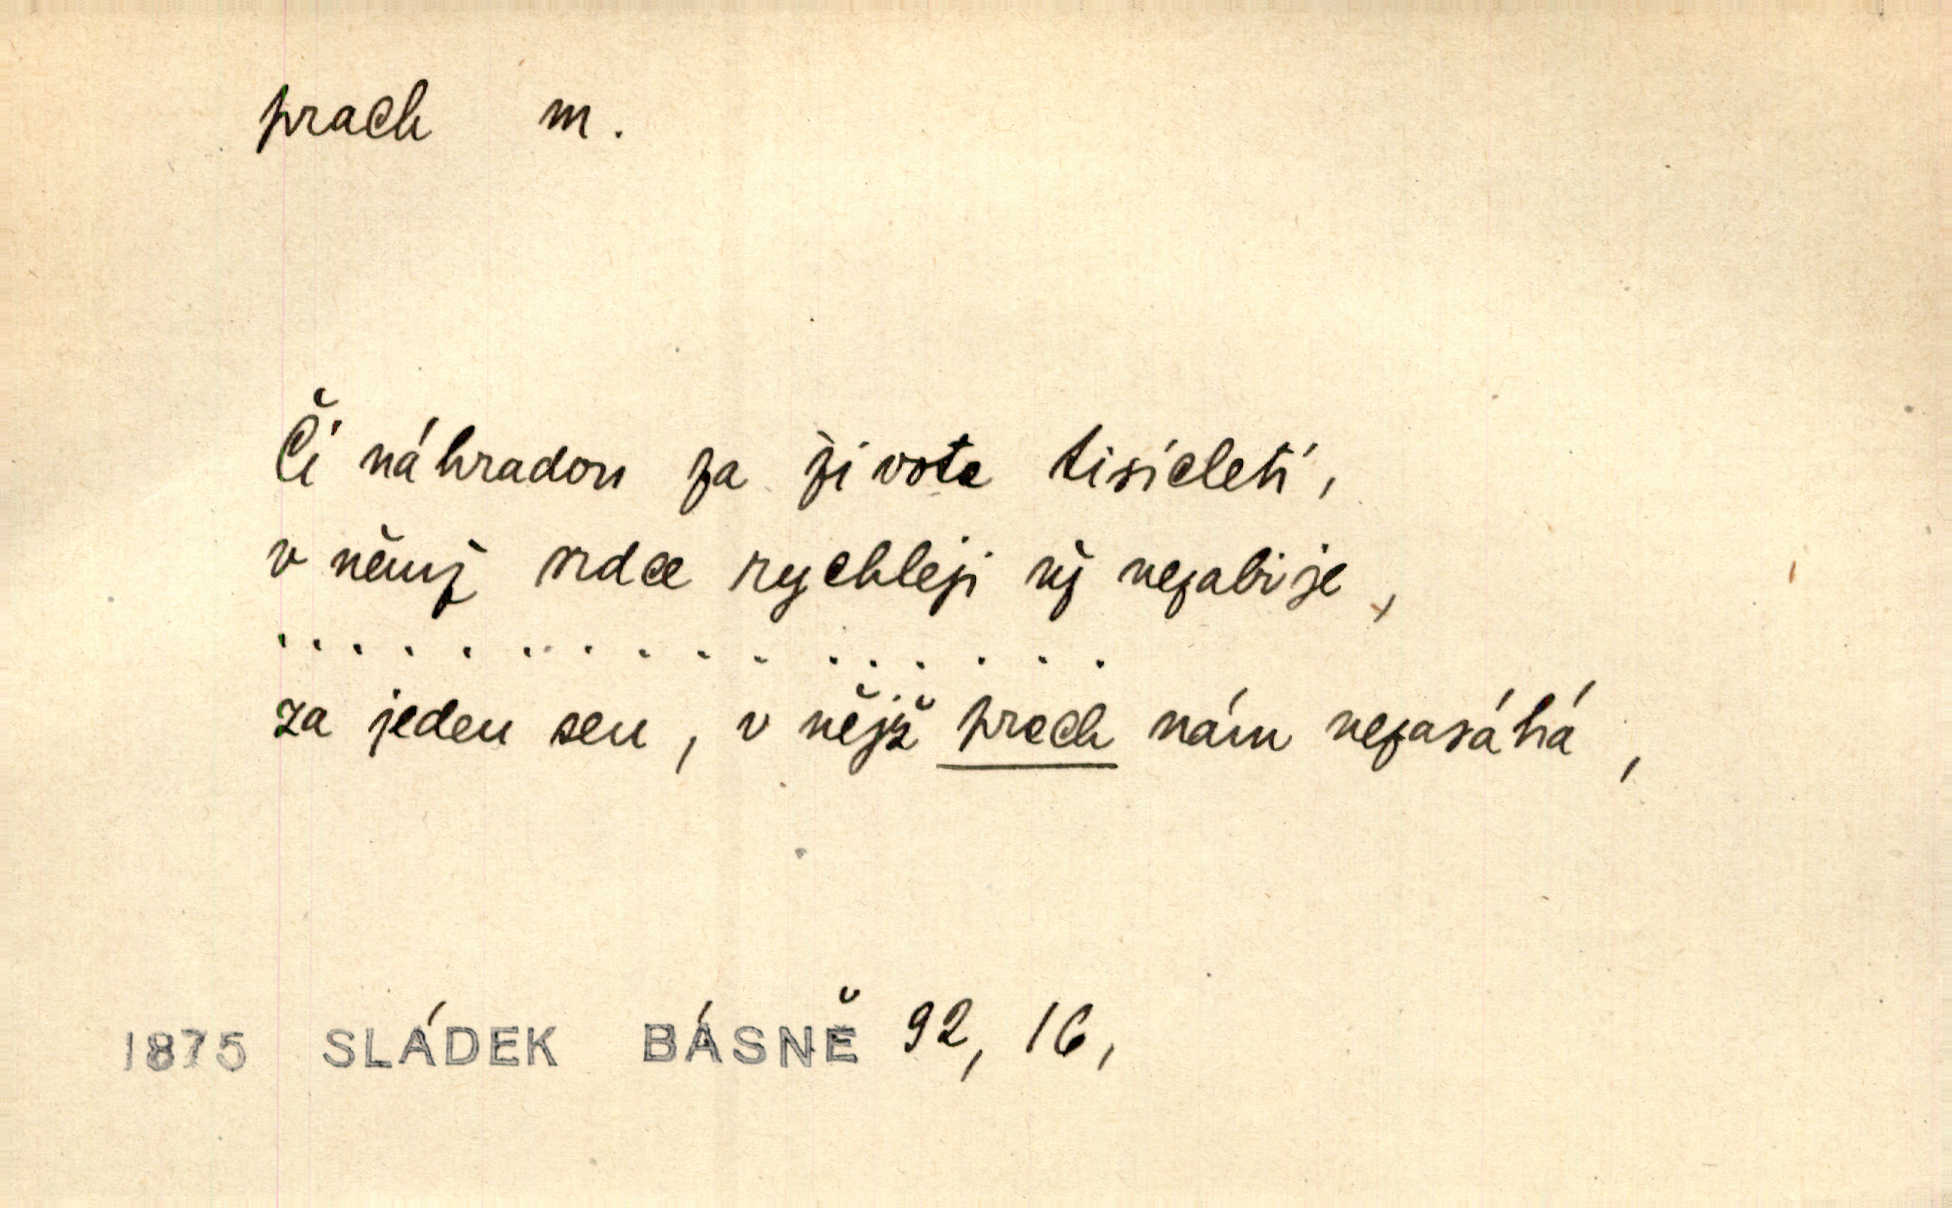 prach m.
Či náhradou za života tisíciletí,
v němž srdce rychleji už nezabije,
. . . . . . . . . . . . . . . .
za jeden sen, v nějž prach nám nezasáhá,
1875 SLÁDEK BÁSNĚ 92, 16,